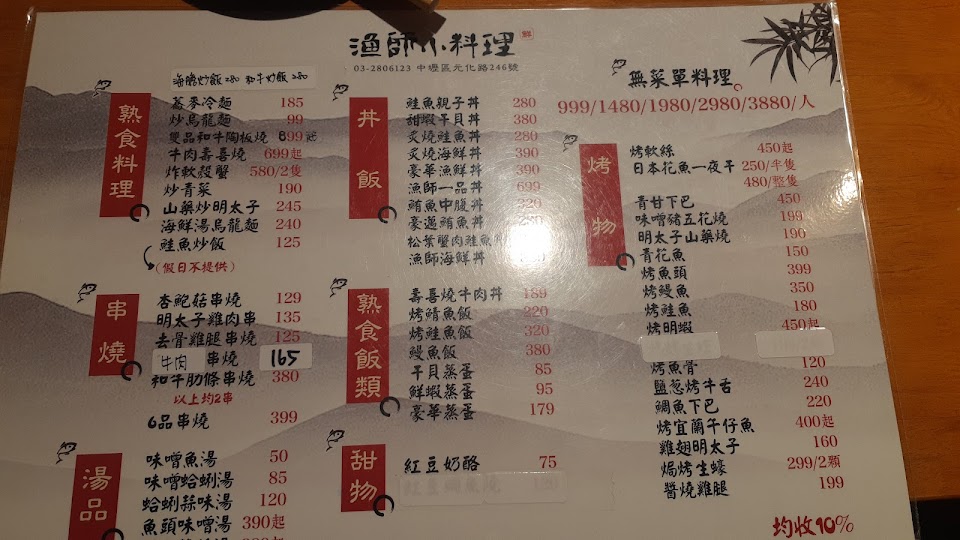 漁師小料理 鮮
03-2806123 中壢區元化路246號
海膽炒飯 280 和牛炒飯 280
熟食料理
蕎麥冷麵 185
炒烏龍麵 99
雙品和牛陶板燒 899起
牛肉壽喜燒 699起
炸軟殼蟹 580/2隻
炒青菜 190
山藥炒明太子 245
海鮮湯烏龍麵 240
鮭魚炒飯 125
(假日不提供)
串燒
杏鮑菇串燒 129
明太子雞肉串 135
去骨雞腿串燒 125
牛肉 串燒 165
和牛肋條串燒 380
以上均2串
6品串燒 399
湯品
味噌魚湯 50
味噌蛤蜊湯 85
蛤蜊蒜味湯 120
魚頭味噌湯 390起
丼飯
鮭魚親子丼 280
甜蝦干貝丼 380
炙燒鮭魚丼 280
炙燒海鮮丼 390
豪華漁鮮丼 390
漁師一品丼 699
鮪魚中腹丼 320
豪邁鮪魚丼
松葉蟹肉鮭魚
漁師海鮮丼
熟食飯類
壽喜燒牛肉丼 189
烤鯖魚飯 220
烤鮭魚飯 320
鰻魚飯 380
干貝蒸蛋 85
鮮蝦蒸蛋 95
豪華蒸蛋 179
甜物
紅豆奶酪 75
無菜單料理
999/1480/1980/2980/3880/人
烤物
烤軟絲 450起
日本花魚一夜干 250/半隻
480/整隻
青甘下巴 450
味噌豬五花燒 199
明太子山藥燒 190
青花魚 150
烤魚頭 399
烤鰻魚 350
烤鮭魚 180
烤明蝦 450起
烤魚骨 120
鹽蔥烤牛舌 240
鯛魚下巴 220
烤宜蘭午仔魚 400起
雞翅明太子 160
焗烤生蠔 299/2顆
醬燒雞腿 199
均收10%